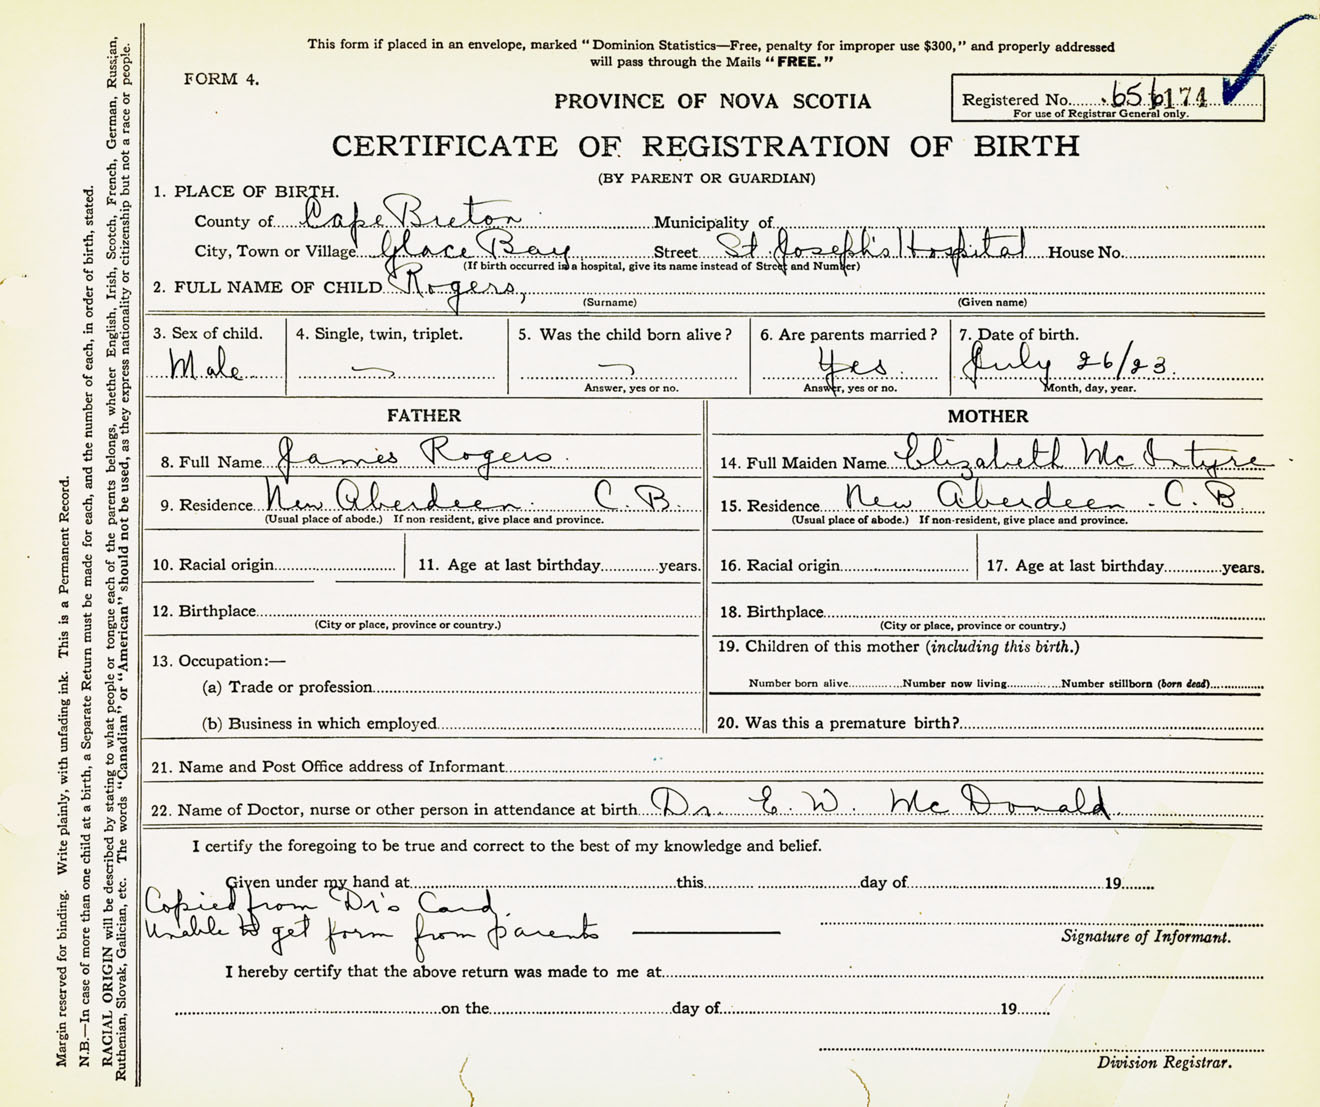 This form if placed in an envelope, marked "Dominion Statistics—Free, penalty for improper use $300," and properly addressed
will pass through the Mails "FREE."
FORM 4.
PROVINCE OF NOVA SCOTIA
Registered No. 656174
For use of Registrar General only.
CERTIFICATE OF REGISTRATION OF BIRTH
(BY PARENT OR GUARDIAN)
1. PLACE OF BIRTH.
County of Cape Breton Municipality of
City, Town or Village Glace Bay Street St. Joseph's Hospital House No.
(If birth occurred in a hospital, give its name instead of Street and Number)
2. FULL NAME OF CHILD Rogers,
(Surname) (Given name)
3. Sex of child. 4. Single, twin, triplet. 5. Was the child born alive? 6. Are parents married? 7. Date of birth.
Male Yes July 26/23.
Answer, yes or no. Answer, yes or no. Month, day, year.
FATHER MOTHER
8. Full Name James Rogers. 14. Full Maiden Name Elizabeth McIntyre.
9. Residence New Aberdeen. C. B. 15. Residence New Aberdeen. C. B.
(Usual place of abode.) If non resident, give place and province. (Usual place of abode.) If non-resident, give place and province.
10. Racial origin 11. Age at last birthday years. 16. Racial origin 17. Age at last birthday years.
12. Birthplace 18. Birthplace
(City or place, province or country.) (City or place, province or country.)
19. Children of this mother (including this birth.)
13. Occupation:—
(a) Trade or profession Number born alive Number now living Number stillborn (born dead)
(b) Business in which employed 20. Was this a premature birth?
21. Name and Post Office address of Informant
22. Name of Doctor, nurse or other person in attendance at birth Dr. E. W. McDonald.
I certify the foregoing to be true and correct to the best of my knowledge and belief.
Given under my hand at this day of 19
Copied from Dr's Card.
Unable to get form from parents
Signature of Informant.
I hereby certify that the above return was made to me at
on the day of 19
Division Registrar.
Margin reserved for binding. Write plainly, with unfading ink. This is a Permanent Record.
N.B.—In case of more than one child at a birth, a Separate Return must be made for each, and the number of each, in order of birth, stated.
RACIAL ORIGIN will be described by stating to what people or tongue each of the parents belongs, whether English, Irish, Scotch, French, German, Russian,
Ruthenian, Slovak, Galician, etc. The words "Canadian" or "American" should not be used, as they express nationality or citizenship but not a race or people.